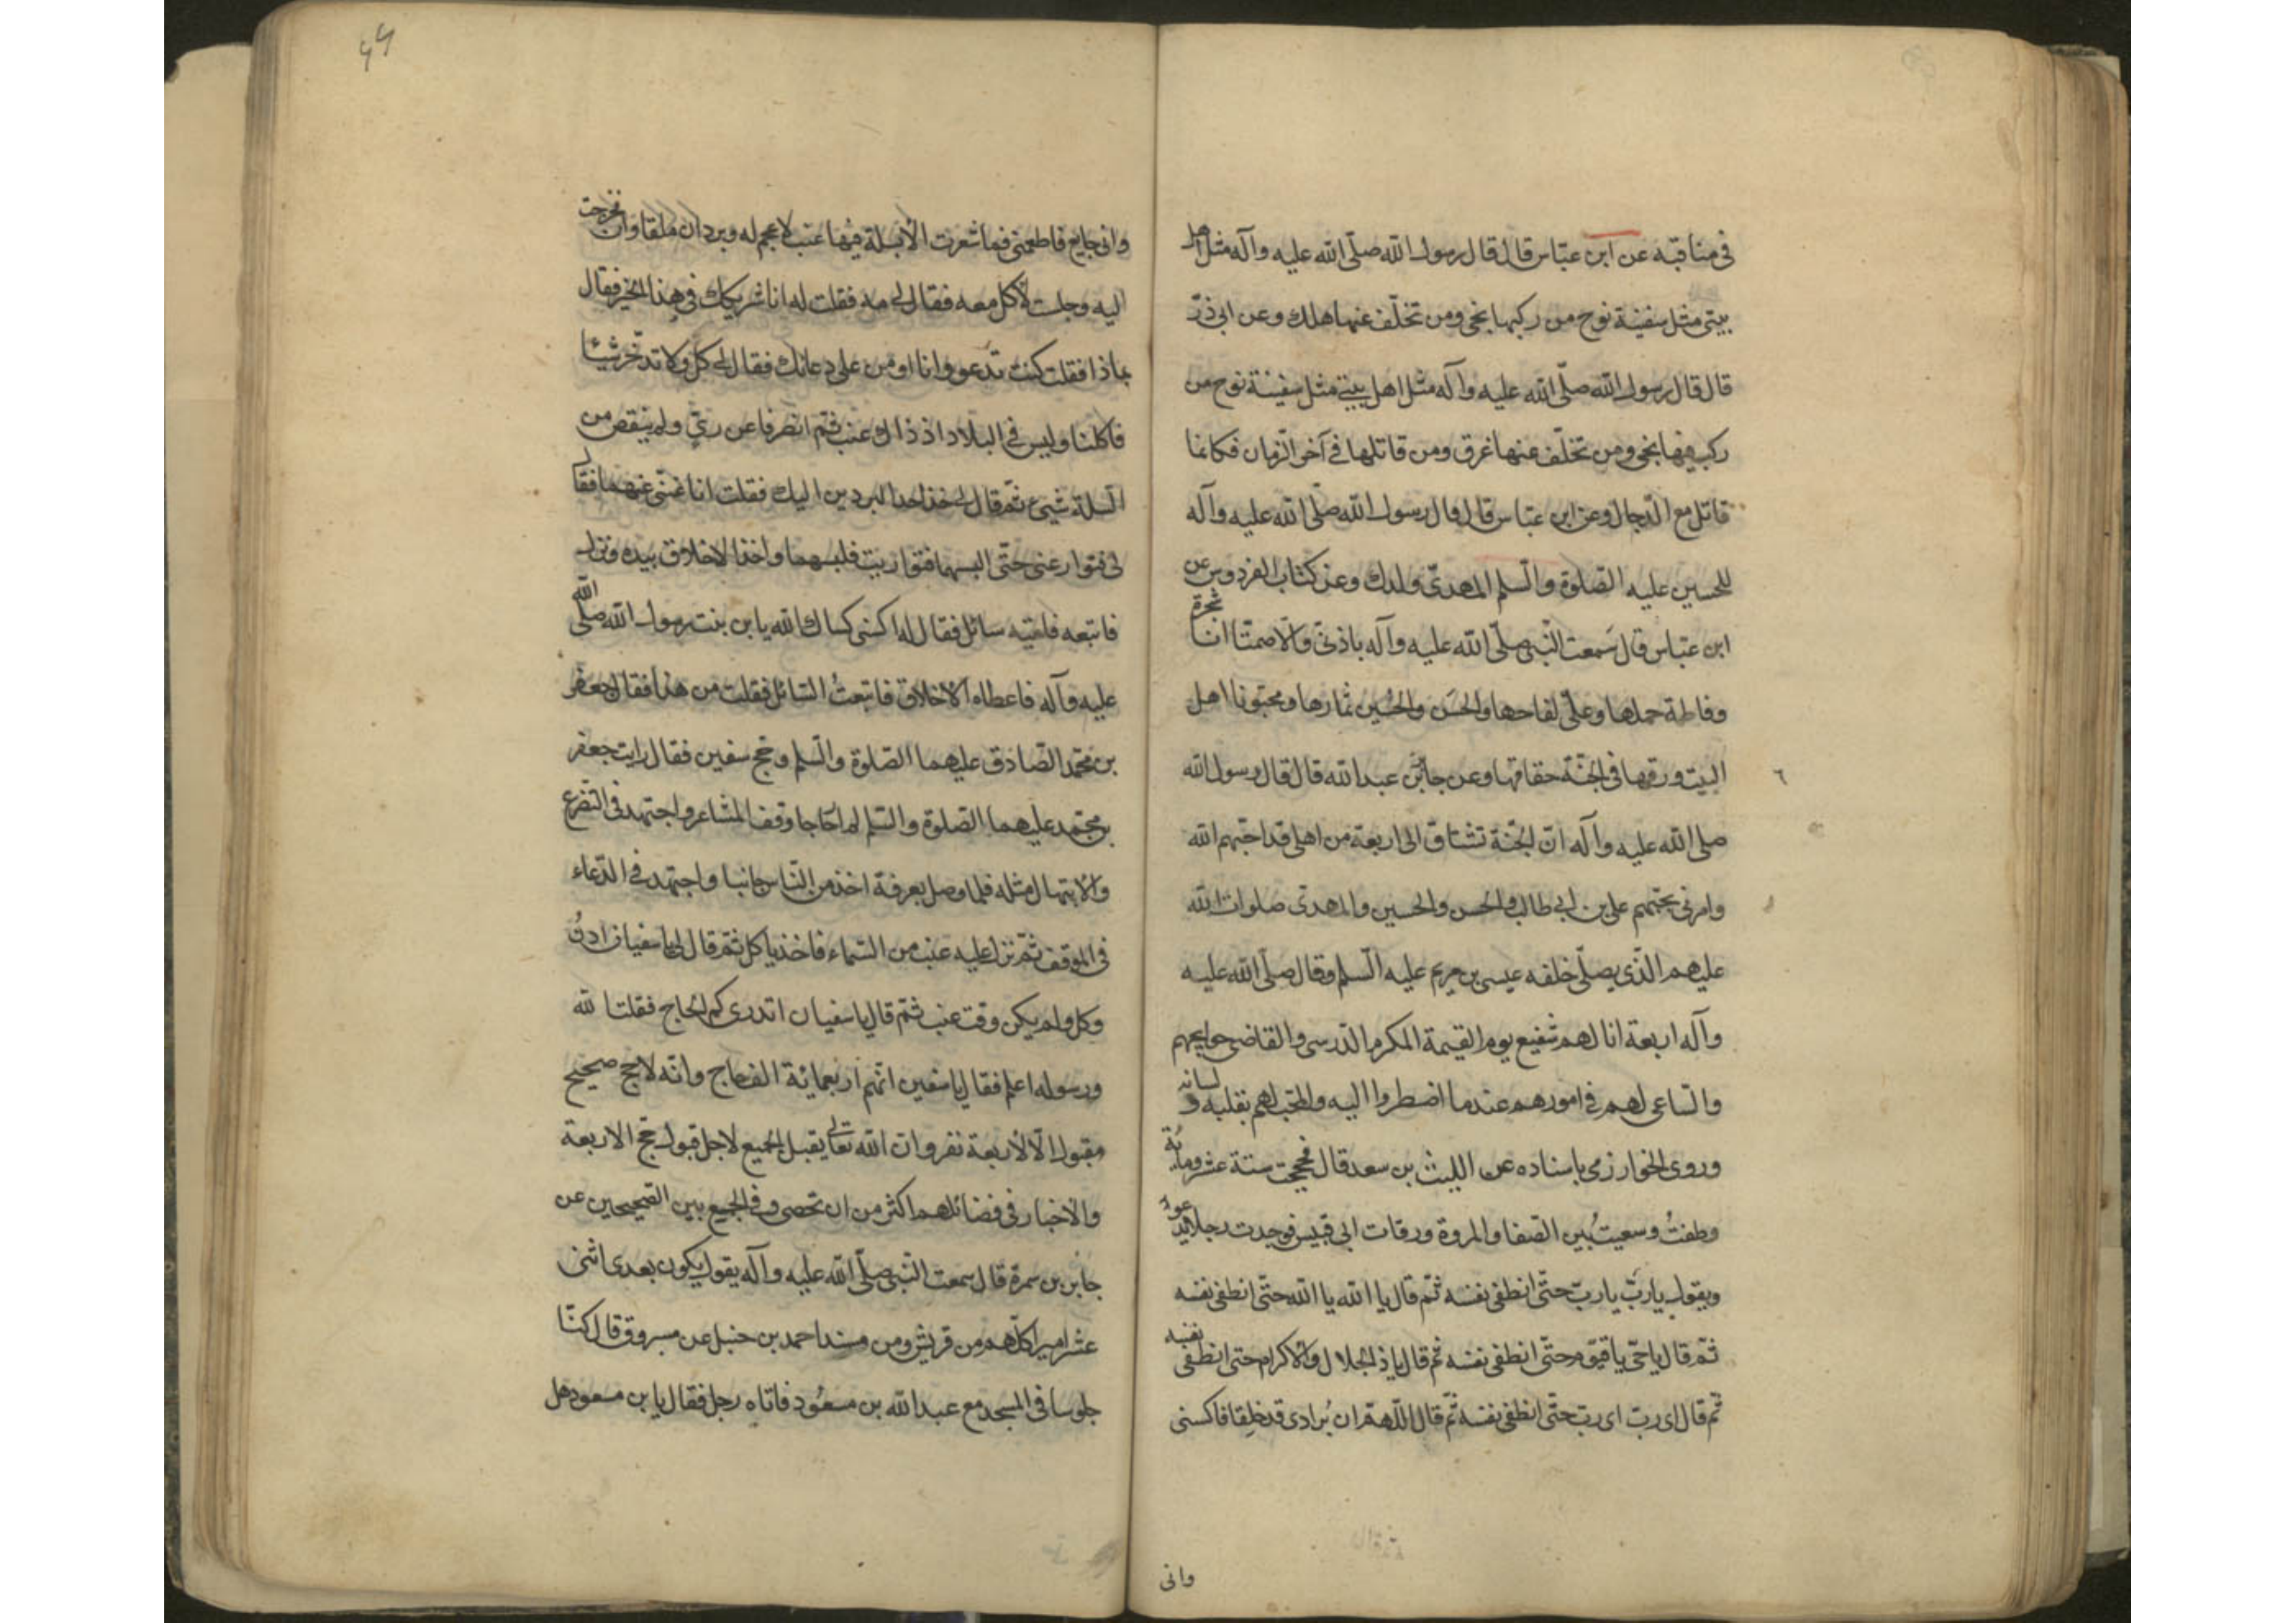 في مناقبه عن ابن عباس قال قال رسول الله صلّى الله عليه وآله مثل اهل
بيتي مثل سفينة نوح من ركبها نجى ومن تخلّف عنها هلك وعن ابي ذرّ
قال قال رسول الله صلّى الله عليه وآله مثل اهل بيتي مثل سفينة نوح من
ركب فيها نجى ومن تخلّف عنها غرق ومن قاتلها في آخر الزمان فكانما
قاتل مع الدّجال وعن ابن عباس قال قال رسول الله صلّى الله عليه وآله
للحسين عليه الصلوة والسلم المهدىّ ولدك وعن كتاب الفردوس عن
ابن عبّاس قال سَمعت النّبى صلّى الله عليه وآله باذنىّ والّا صمتّا انا شجرة
وفاطمة حملها وعلىّ لقاحها والحسَن والحُسين ثمارها ومحبّونا اهل
البيت ورقها فى الجنّة حقا حقا وعن جابر بن عبد الله قال قال رسول الله
صلى الله عليه وآله انّ الجنّة تشتاق الى اربعة من اهلى قد احبّهم الله
وامرنى بحبّهم على بن ابى طالب والحسن والحسين والمهدىّ صلوات الله
عليهم الّذى يصلّى خلفه عيسى بن مريم عليه السّلم وقال صلّى الله عليه
وآله اربعة انا لهم شفيع يوم القيمة المكرم الذريتى والقاضى حوايجهم
والساعى لهم فى امورهم عندما اضطروا اليه والمحبّ لهم بقلبه و لسانه
وروى الخوارزمى باسناده عن الليث بن سعد قال حججت ستة عشر ومائة
وطفتُ وسعيتُ بين الصّفا والمروة ورقات ابى قبيس فوجدت رجلا يدعو
ويقول يا ربّ يا ربّ حتّى انطفى نفسه ثمّ قال يا الله يا الله حتّى انطفى نفسه
ثمّ قال يا حىّ يا قيّوم حتّى انطفى نفسه ثم قال يا ذا الجلال والاكرام حتى انطفى نفسه
ثم قال اى ربّ اى ربّ حتّى انطفى نفسه ثم قال اللّهمّ ان بُرادى قد خلقا فاكسنى
وانى
وانى جايع فاطعمنى فما شعرت الا بسلة فيها عنب لا عجم له وبردان ملقاوان فخرجت
اليه وجلست لآكل معه فقال لى مه فقلت له انا شريكك فى هذا الخير فقال
بماذا فقلت كنت تدعو وانا اومن على دعائك فقال لى كل ولا تدّخر شيئا
فاكلنا وليس فى البلاد اذ ذاك عنب ثم انصرفنا عن رىّ ولم ينقص من
السّلة شىء ثم قال لى خذ احد البردين اليك فقلت انا غنىّ عنهما فقال
لى فتوار عنى حتّى البسهما فتواريت فلبسهما واخذ الاخلاق بيده ونزل
فاتبعه فلقيه سائل فقال له اكسنى كساك الله يا بن بنت رسول الله صلّى الله
عليه وآله فاعطاه الاخلاق فاتبعتُ السّائل فقلت من هذا فقال جعفر
بن محمّد الصّادق عليهما الصّلوة والسّلم وحج سفين فقال رايت جعفر
بن محمّد عليهما الصّلوة والسّلم لم ار حاجا وقف المشاعر واجتهد فى التضرع
والابتهال مثله فلما وصل بعرفة اخذ من النّاس جانبا واجتهد فى الدّعاء
فى الموقف ثمّ نزل عليه عنب من السّماء فاخذ ياكل ثم قال لى يا سفيان ادنُ
وكل ولم يكن وقت عنب ثمّ قال يا سفيان اتدرى كم الحاج فقلت الله
ورسوله اعلم فقال يا سفين انهم اربعمائة الف حاج وانّه لا حج صحيح
مقبول الّا لاربعة نفر وان الله تعالى يقبل الجميع لاجل قبول حج الاربعة
والاخبار فى فضائلهم اكثر من ان تحصى وفى الجمع بين الصّحيحين عن
جابر بن سمرة قال سمعت النّبى صلّى الله عليه وآله يقول يكون بعدى اثنى
عشر اميرا كلّهم من قريش ومن مسند احمد بن حنبل عن مسروق قال كنّا
جلوسا فى المسجد مع عبد الله بن مسعُود فاتاه رجل فقال يا بن مسعود هل